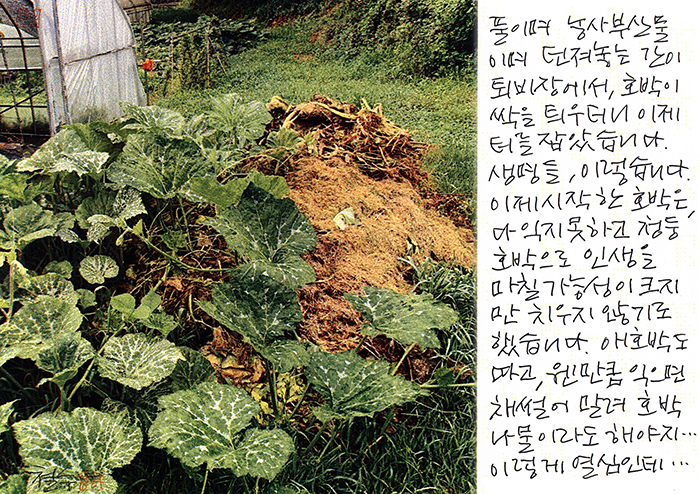 풀이며 농사부산물
이며 던져놓는 간이
퇴비장에서, 호박이
싹을 틔우더니 이제
터를 잡았습니다.
생명들, 이렇습니다.
이제 시작한 호박은,
다 익지 못하고 청둥
호박으로 인생을
마칠 가능성이 크지
만 치우지 않기로
했습니다. 애호박도
따고, 웬만큼 익으면
채썰어 말려 호박
나물이라도 해야지…
이렇게 열심인데…